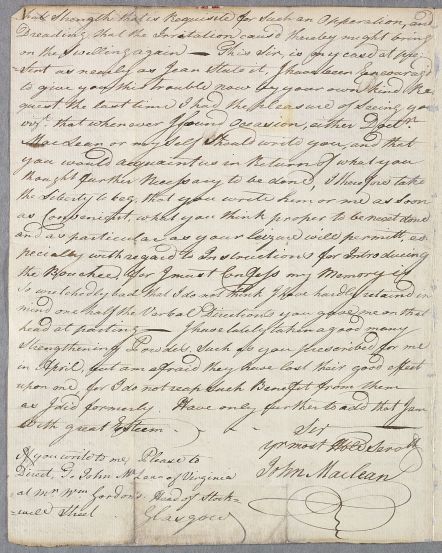 that Strength that is Requisite for Such an Opperation, and
Dreading that the Irritation caus'd thereby might bring
on the Swelling again — This Sir, is my case at pre-
sent as nearly as I can State it, I have been Encouraged
to give you this trouble now by your own kind Re-
quest the last time I had the pleasure of Seeing you
vizt. that whenever I found Occasion, either Doctr.
MacLean or my Self Should write you, and that
you would acquaint us in Return of what you
thought further Necessary to be done, I therefore take
the Liberty to beg, that you write him or me as soon
as Convenient, what you think proper to be next done
and as particular as your Leizure will permitt, es-
pecially with regard to Instructions for Introducing
the Boushee, for I must Confess my Memory is
So wretchedly bad that I do not think I have hardly retained in
mind one half the Verbal Directions you gave me on that
head at parting — I have lately taken a good many
Strengthening Powders, Such as you prescribed for me
in April, but am afraid they have lost their good effect
upon me, for I do not reap Such Benefit from them
as I did formerly. Have only further to add that I am
With great Esteem
Sir
yr. most Obedt. Servt.
John Maclean
If you write to me Please to
Direct, To John McLean of Virginia
at Mr. Wm. Gordon's, Head of Stock-
well Street
Glasgow